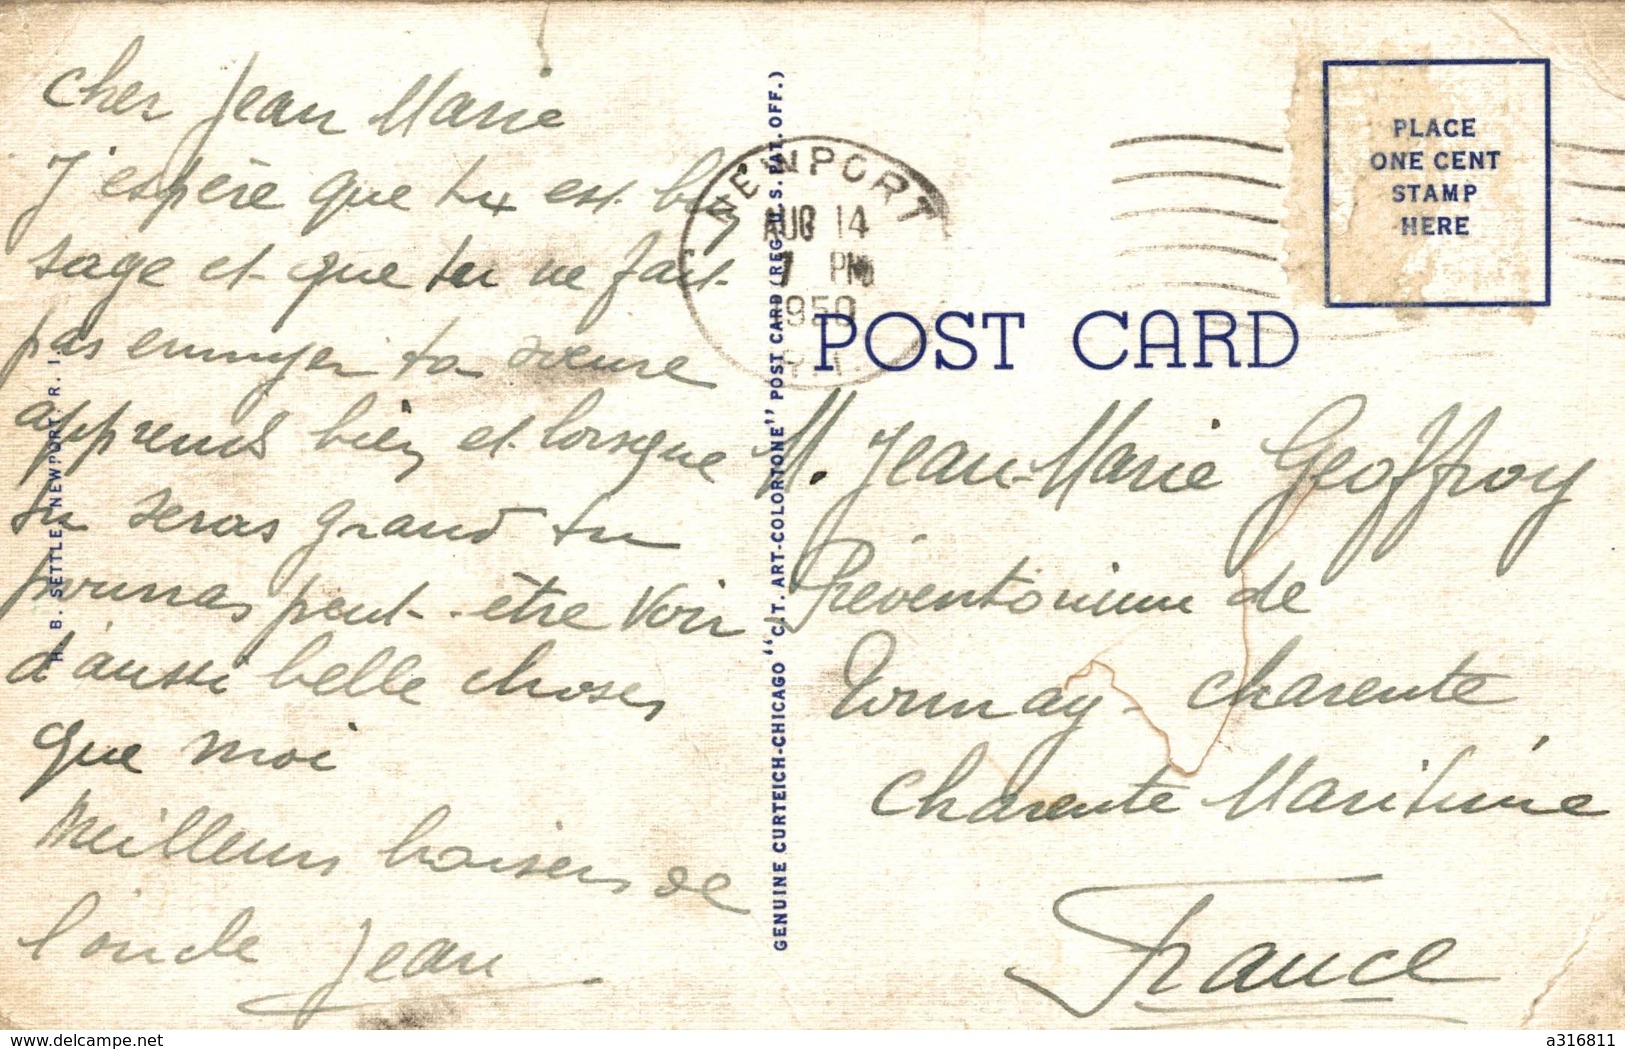 cher Jean Marie
J'espère que tu est bien
sage et que tu ne fait
pas ennuyer ta soeure
apprends bien et lorsque
tu seras grand tu
pourras peut-être voir
d'aussi belle choses
que moi
Meilleurs baisers de
l'oncle Jean
H. B. SETTLE, NEWPORT, R. I.
GENUINE CURTEICH-CHICAGO "C.T. ART-COLORTONE" POST CARD (REG. U.S. PAT. OFF.)
NEWPORT
AUG 14
7 PM
1950
R.I.
POST CARD
PLACE
ONE CENT
STAMP
HERE
M. Jean-Marie Geoffroy
Préventorium de
Tonnay-charente
charente Maritime
France
www.delcampe.net
a316811